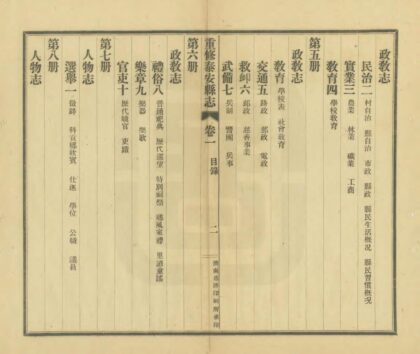 政敎志
民治二 村自治 縣自治 市政 縣政 縣民生活概况 縣民習慣概况
實業三 農業 林業 礦業 工商
敎育四 學校敎育
第五册
政敎志
敎育 學校表 社會敎育
交通五 路政 郵政 電政
救卹六 卹政 慈善救卹
武備七 兵制 警團 兵事
重修泰安縣志 卷一 目錄 二
第六册
政敎志
禮俗八 普通祀典 歷代遺址 特別祠祭 通風家禮 里諺童謠
樂章九 樂器 樂歌
官吏十 歷代職官 吏蹟
第七册
人物志
選舉一 徵辟 科貢鄉飲賓 仕進 學位 公職 議員
第八册
人物志